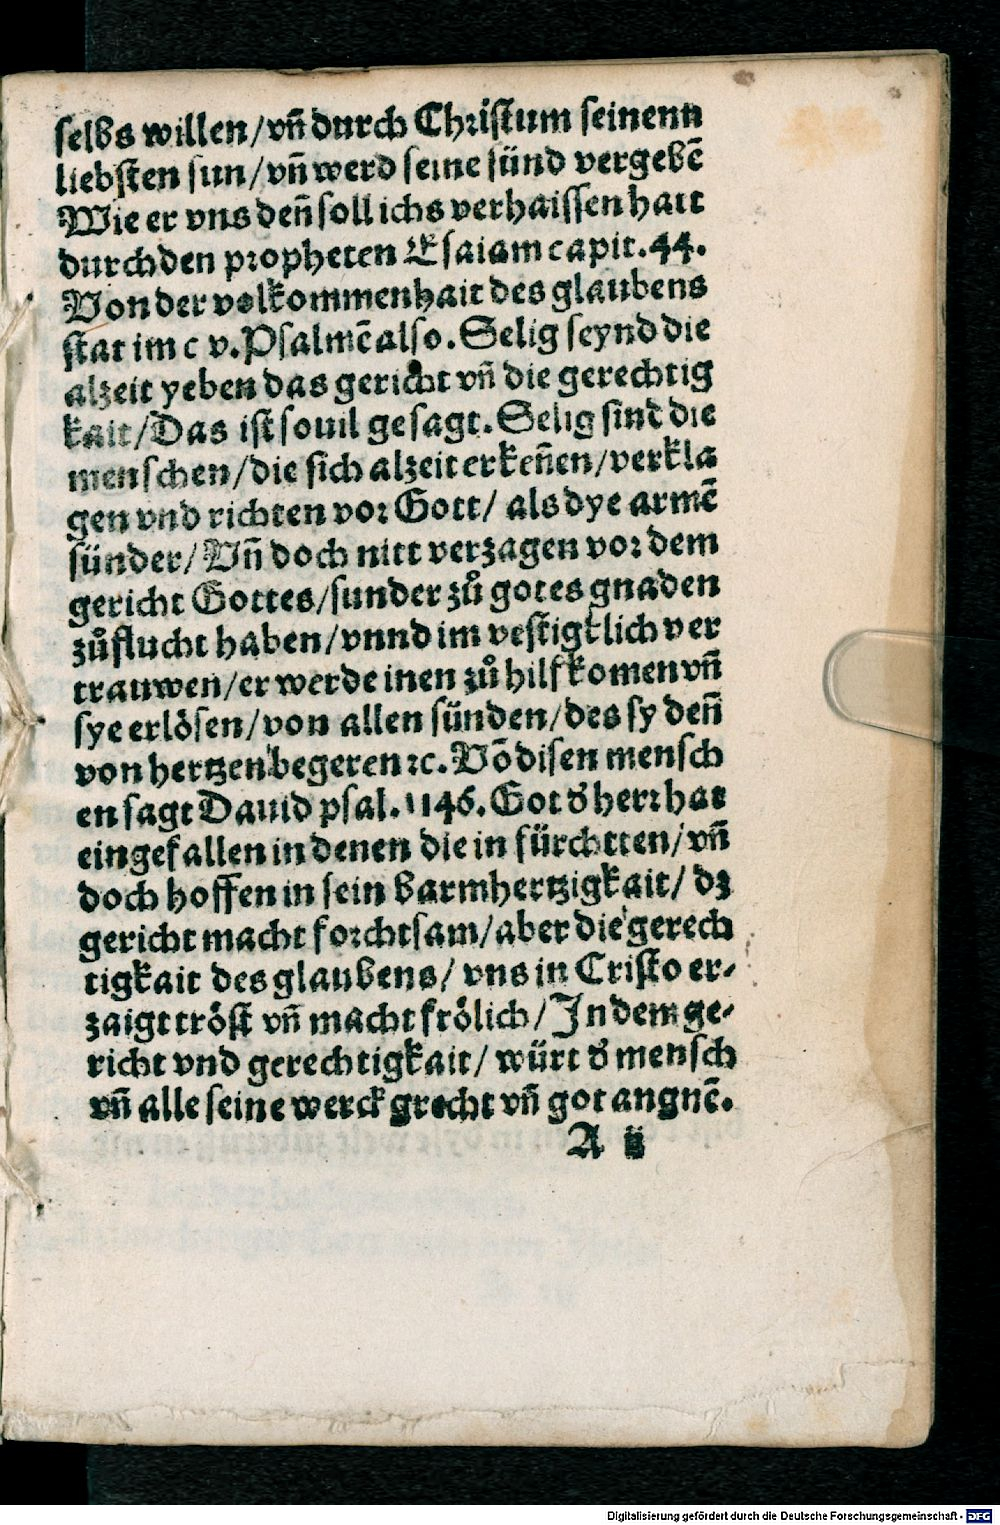 selbs willen/vn̄ durch Christum seinenn
liebsten sun/vn̄ werd seine sünd vergebē
Wie er vns den̄ sollichs verhaissen hatt
durch den propheten Esaiam capit.44.
Von der volkommenhait des glaubens
stat im c v.Psalmē also. Selig seynd die
alzeit yeben das gericht vn̄ die gerechtig
kait/Das ist souil gesagt. Selig sind die
menschen/die sich alzeit erken̄en/verkla
gen vnd richten vor Gott/ als dye armē
sünder/Vn̄ doch nitt verzagen vor dem
gericht Gottes/sunder zů gotes gnaden
zůflucht haben/vnnd im vestigklich ver
trauwen/er werde inen zů hilf komen vn̄
sye erlösen/von allen sünden/des sy den̄
von hertzen begeren ꝛc. Vō disen mensch
en sagt Dauid psal.1146. Got d' herr hat
eingefallen in denen die in fürchtten/vn̄
doch hoffen in sein barmhertzigkait/ dz
gericht macht forchtsam/aber die gerech
tigkait des glaubens/ vns in Cristo er-
zaigt tröst vn̄ macht frölich/In dem ge-
richt vnd gerechtigkait/ würt d' mensch
vn̄ alle seine werck grecht vn̄ got angnē.
A ij
Digitalisierung gefördert durch die Deutsche Forschungsgemeinschaft - DFG